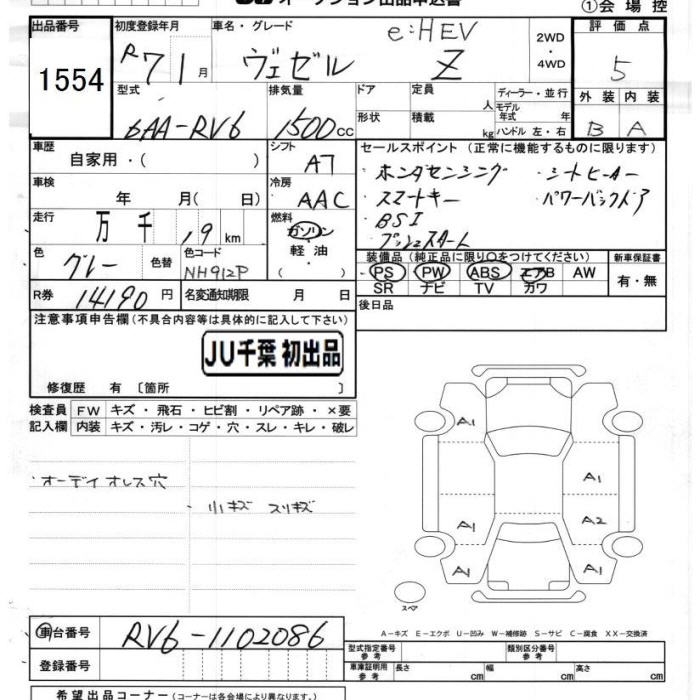 オークション出品申込書
①会場控
出品番号 初度登録年月 車名・グレード 評価点
1554 R7 1月 ヴェゼル e:HEV Z 2WD・4WD 5
型式 排気量 ドア 定員 人 ディーラー・並行 外装 内装
6AA-RV6 1500cc 形状 積載 kg モデル年式 年 ハンドル 左・右 B A
車歴 シフト セールスポイント (正常に機能するものに限ります)
自家用・( ) A7 ・ホンダセンシング ・シートヒーター
車検 冷房 ・スマートキー ・パワーバックドア
年 月( 日) AAC ・BSI
走行 燃料 ・プッシュスタート
万 千 19km ガソリン・軽油・( )
色 色替 色コード 装備品 (純正品に限り○をつけてください) 新車保証書
グレー NH912P PS PW ABS エアB AW 有・無
SR ナビ TV カワ
R券 14190円 名変通知期限 月 日 後日品
注意事項申告欄 (不具合内容等は具体的に記入して下さい)
JU千葉 初出品
修復歴 有 〔箇所 〕
検査員 FW キズ・飛石・ヒビ割・リペア跡・×要
記入欄 内装 キズ・汚レ・コゲ・穴・スレ・キレ・破レ
A1
・オーディオレス穴 A1
・小キズ スリキズ
A1 A2
A1 A1
スペア
A-キズ E-エクボ U-凹み W-補修跡 S-サビ C-腐食 XX-交換済
車台番号 RV6-1102086
型式指定番号 参考 類別区分番号 参考
登録番号 車庫証明用 参考 長さ cm 幅 cm 高さ cm
希望出品コーナー (コーナーは各会場により異なります。)